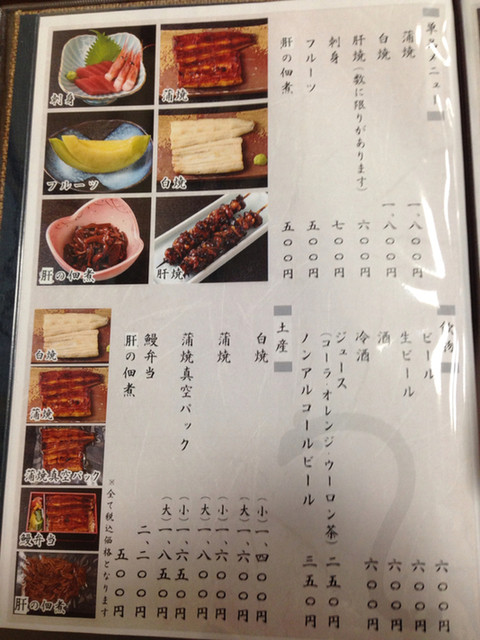 単品メニュー
蒲焼 一、八〇〇円
白焼 一、八〇〇円
肝焼(数に限りがあります) 六〇〇円
刺身 七〇〇円
フルーツ 五〇〇円
肝の佃煮 五〇〇円
刺身
蒲焼
フルーツ
白焼
肝の佃煮
肝焼
ビール 六〇〇円
生ビール 六〇〇円
酒 六〇〇円
冷酒 六〇〇円
ジュース
(コーラ・オレンジ・ウーロン茶) 二五〇円
ノンアルコールビール 三五〇円
土産
白焼 (小)一、四〇〇円
(大)一、六〇〇円
蒲焼 (小)一、六〇〇円
(大)一、八〇〇円
蒲焼真空パック (小)一、六五〇円
(大)一、八五〇円
鰻弁当 二、二〇〇円
肝の佃煮 五〇〇円
※全て税込価格となります
白焼
蒲焼
蒲焼真空パック
鰻弁当
肝の佃煮